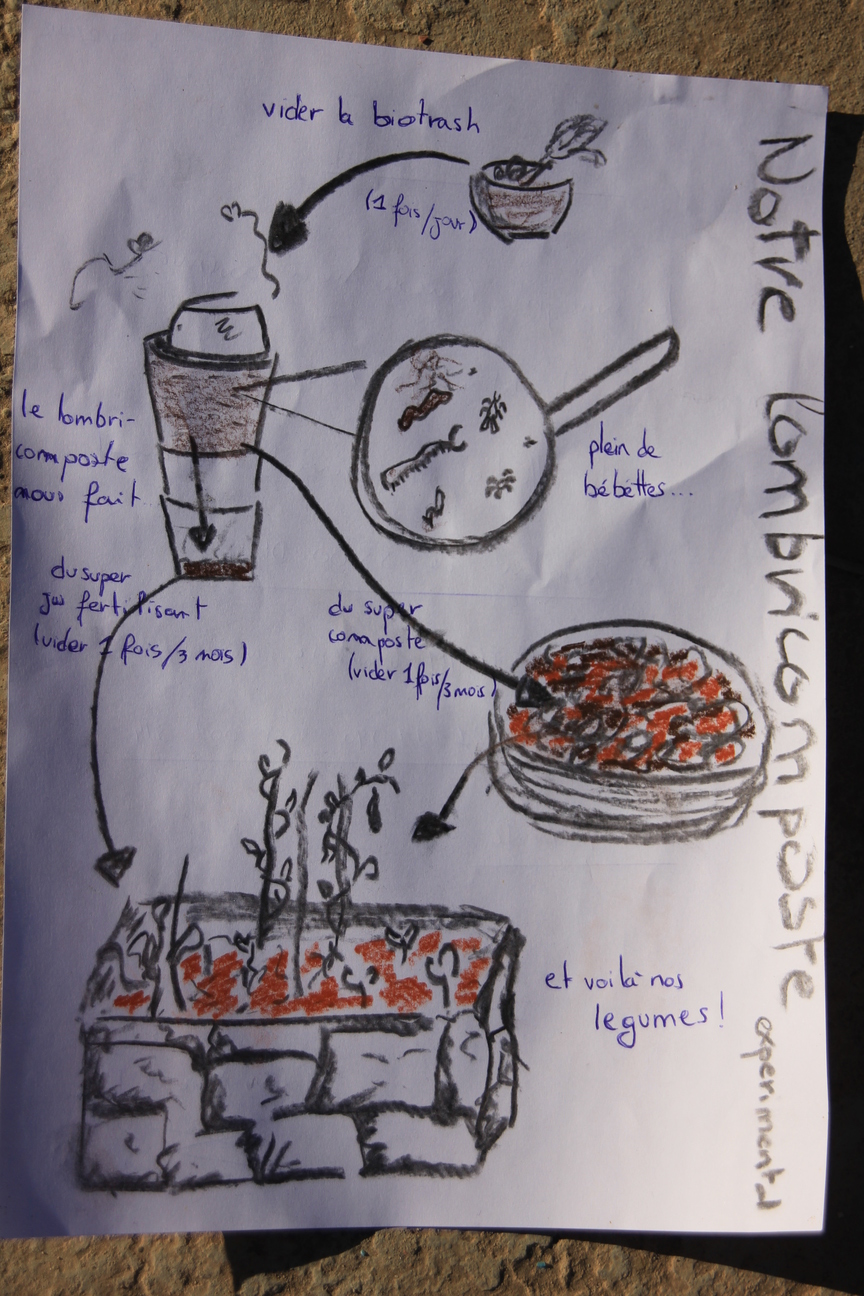 Notre lombricomposte
experimental
vider la biotrash
(1 fois/jour)
le lombri-
composte
nous fait
plein de
bébèttes...
du super
jus fertilisant
(vider 1 fois/3 mois)
du super
composte
(vider 1 fois/3 mois)
et voilà nos
legumes!